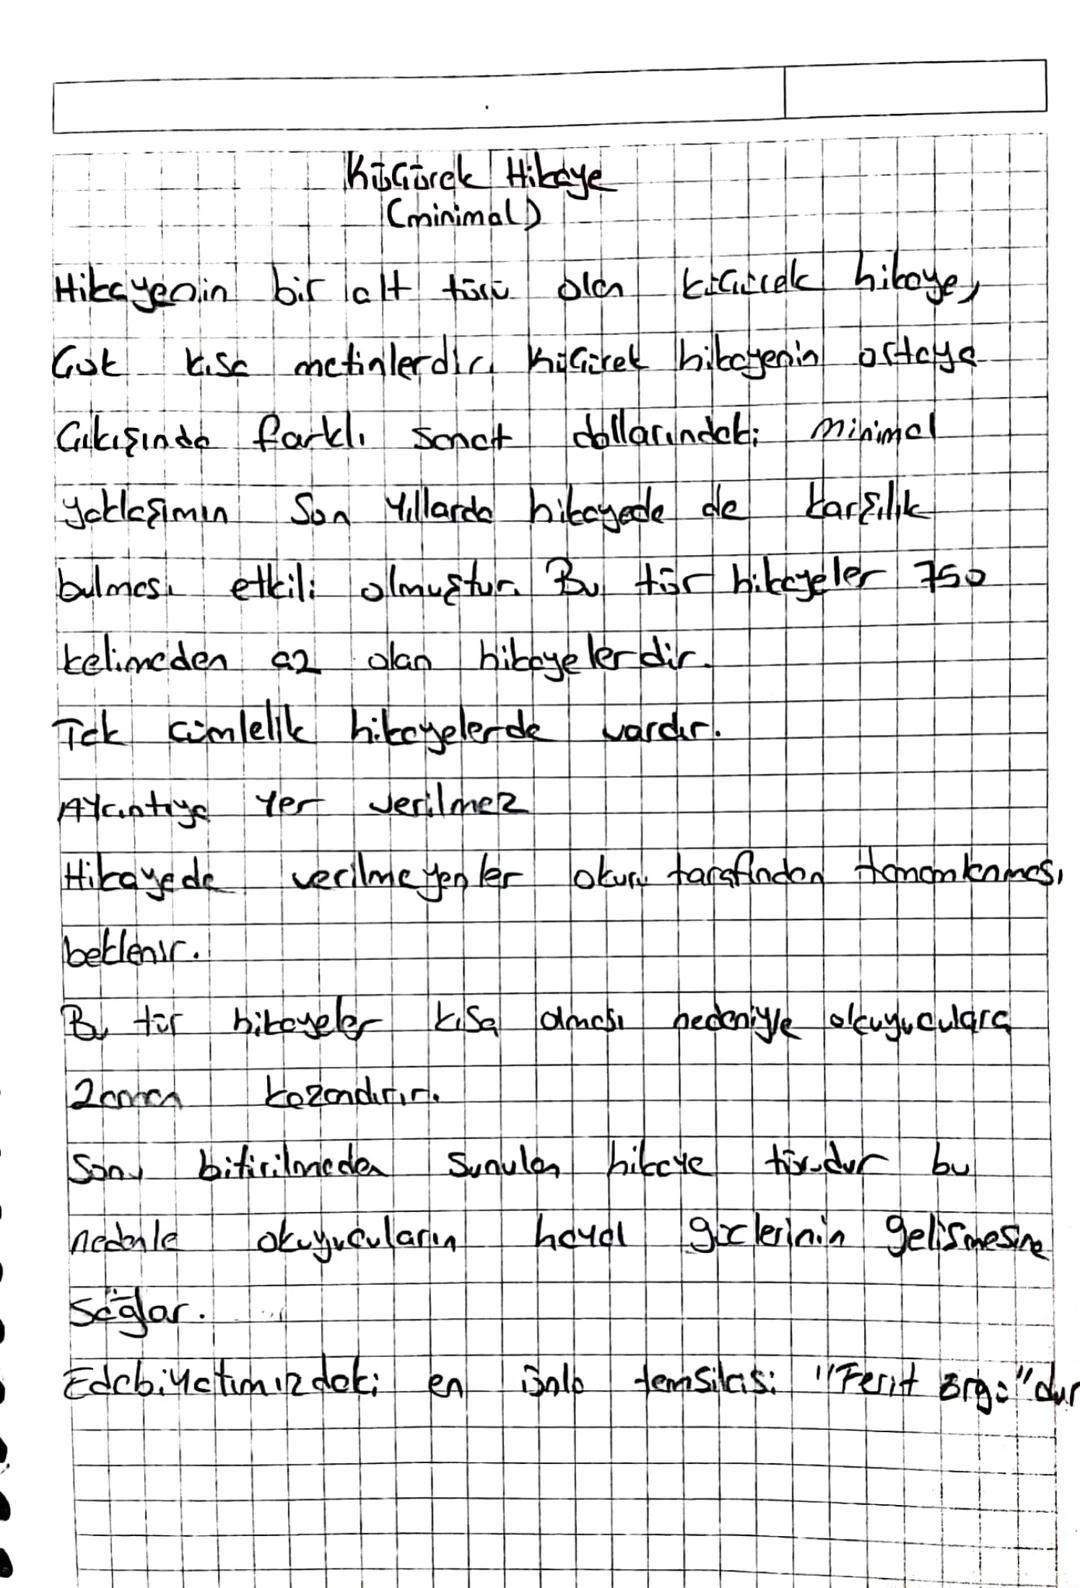 Küçürek Hikaye
(minimal)
Hikayenin bir alt türü olan küçürek hikaye,
Çok kısa metinlerdir. Küçürek hikayenin ortaya
Çıkışında farklı sanat dallarındaki minimal
yaklaşımın Son Yıllarda hikayede de karşılık
bulması etkili olmuştur. Bu tür hikayeler 750
kelimeden az olan hikayelerdir.
Tek cümlelik hikayelerde vardır.
AYrıntıya Yer verilmez
Hikayede verilmeyenler okuru tarafından tamamlanması
beklenir.
Bu tür hikayeler kısa olması nedeniyle okuyuculara
zaman kazandırır.
Sonu bitirilmeden Sunulan hikaye türüdür bu
nedenle okuyucuların hayal güçlerinin gelişmesine
Sağlar.
Edebiyatımızdaki en ünlü temsilcisi "Ferit Örgü" dür